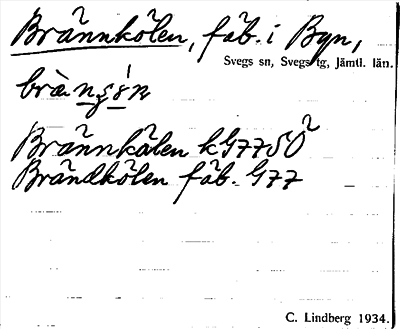 Brännkölen, fäb. i Byn,
Svegs sn, Svegs tg, Jämtl. län.
Brännkälen kG7750²
Brändkölen fäb. G77
C. Lindberg 1934.